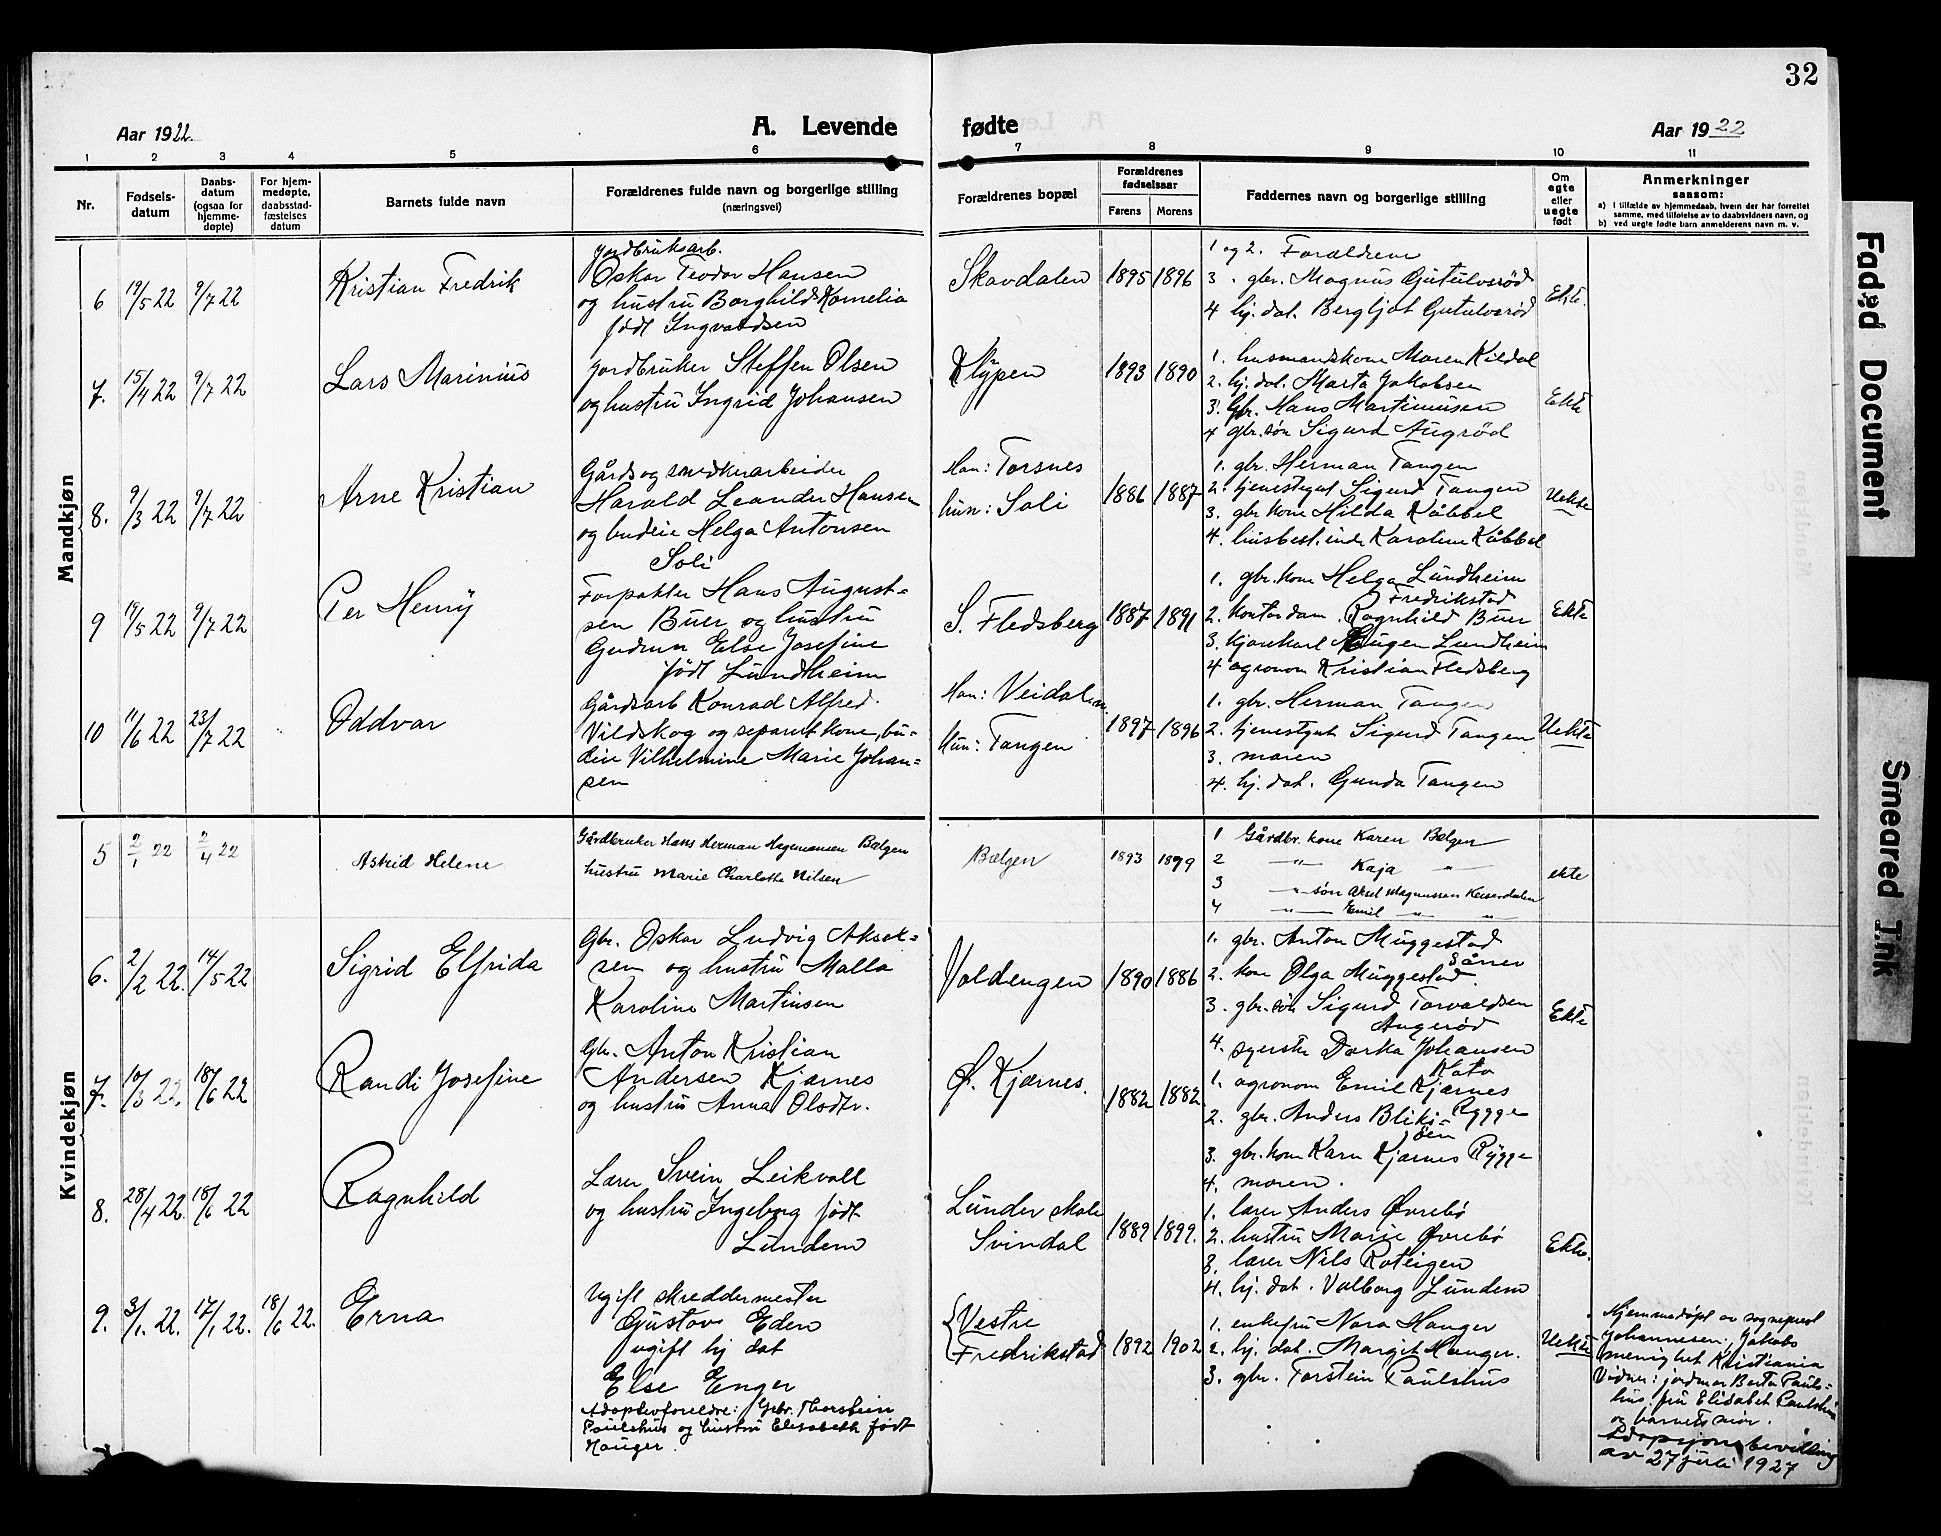 32
Aar 1922. A. Levende fødte Aar 1922
1 2 3 4 5 6 7 8 9 10 11
Nr.
Fødsels-
datum
Daabs-
datum
(ogsaa for
hjemme-
døpte)
For hjem-
medøpte,
daabsstad-
fæstelses
datum
Barnets fulde navn
Forældrenes fulde navn og borgerlige stilling
(næringsvei)
Forældrenes bopæl
Forældrenes
fødselsaar
Farens Morens
Faddernes navn og borgerlige stilling
Om
egte
eller
uegte
født
Anmerkninger
saasom:
a) i tilfælde av hjemmedaab, hvem der har forrettet
samme, med tilføielse av to daabsvidners navn, og
b) ved uegte fødte barn anmelderens navn m. v.
Mandkjøn
6 19/5 22 9/7 22
Kristian Fredrik
Jordbruksarb.
Oskar Teodor Hansen
og hustru Borghild Kornelia
født Ingvaldsen
Skovdalen
1895 1896
1 og 2. Forældrene
3. gbr. Magnus Gutulvsrød
4 hj. dat. Bergljot Gutulvsrød
Ekte.
7. 15/4 22 9/7 22
Lars Marinius
Jordbruker Steffen Olsen
og hustru Ingrid Johansen
Klypen
1893 1890
1. husmandskone Maren Kildal
2. hj. dat. Marta Jakobsen
3. Gbr. Hans Martinusen
4 gbr. søn Sigurd Augrød
Ekte
8. 9/3 22 9/7 22
Arne Kristian
Gårds og snedkerarbeider
Harald Leander Hansen
og budeie Helga Antonsen
Soli
Han: Torsnes
hun: Soli
1886 1887
1. gbr. Herman Tangen
2. tjenestegut Sigurd Tangen
3. gbr kone Hilda Kåbbel
4. husbest.inde Karoline Kåbbel
Uekte
9 19/5 22 9/7 22
Per Henry
Forpakter Hans August=
sen Buer og hustru
Gudrun Else Josefine
født Lundheim
S. Fledsberg
1887 1891
1. gbr. kone Helga Lundheim
Fredrikstad
2. kontordam. Ragnhild Buer
3. Kjørekarl Haugen Lundheim
4 agronom Kristian Fledsberg
Ekte
10 11/6 22 23/7 22
Oddvar
Gårdsarb Konrad Alfred
Vildskog og separert kone, bu-
deie Vilhelmine Marie Johan-
sen
Han: Veidalen
Hun: Tangen
1897 1896
1. gbr. Herman Tangen
2. tjenestgut Sigurd Tangen
3. moren
4. hj. dat. Gunda Tangen
Uekte
Kvindekjøn
5 2/1 22 2/4 22
Astrid Helene
Gårdbruker Hans Herman Magnussen Bølgen
hustru Marie Charlotte Nilsen
Bølgen
1893 1899
1 Gårdbr. kone Karen Bølgen
2 —"— Kaja "
3 —"— søn Aksel Magnussen Keiserdalen
4 —"— Emil " "
ekte
6. 2/2 22. 14/5 22
Sigrid Elfrida
Gbr. Oskar Ludvig Aksel=
sen og hustru Malla
Karoline Martinsen
Voldengen
1890 1886
1. gbr. Anton Muggestad
Såner
2. kone Olga Muggestad.
3. gbr. søn Sigurd Torvaldsen
Augerød
4. syerske Dorka Johansen
Ekte
7. 10/3 22. 18/6 22
Randi Josefine
Gbr. Anton Kristian
Andersen Kjærnes
og hustru Anna Olsdtr.
Ø. Kjærnes.
1882 1882
1. agronom Emil Kjærnes
2. gbr. Anders Blikø= Rygge
øen
3. gbr. kone Karn Kjærnes Rygge
4. moren.
8. 28/4 22. 18/6 22
Ragnhild
Lærer Svein Leikvoll
og hustru Ingeborg født
Lundem
Lunder skole
Svindal
1889 1899.
1. lærer Anders Øvrebø
2. hustru Marie Øvrebø
3. lærer Nils Roteigen
4. hj. dat. Valborg Lundem
Ekte.
9. 3/1. 22. 17/1. 22. 18/6 22.
Erna
Ugift skreddermester
Gustav Eden
ugift hj dat
Else Enger
Adoptivforeldre: Gbr. Thorstein
Paulshus og hustru Elisabeth født
Hauger.
Vestre
Fredrikstad
1892 1902
1. enkefru Nora Hauger
2. hj. dat. Margit Hauger.
3. gbr. Torstein Paulshus
Uekte
Hjemmedøpt av sogneprest
Johannesen, Jakobs
menighet Kristiania
Vidner: jordmor Berta Pauls=
hus, fru Elisabet Paulshus
og barnets mor.
Adopsjonsbevilling
av 27 juli 1927
Faded Document
Smeared Ink